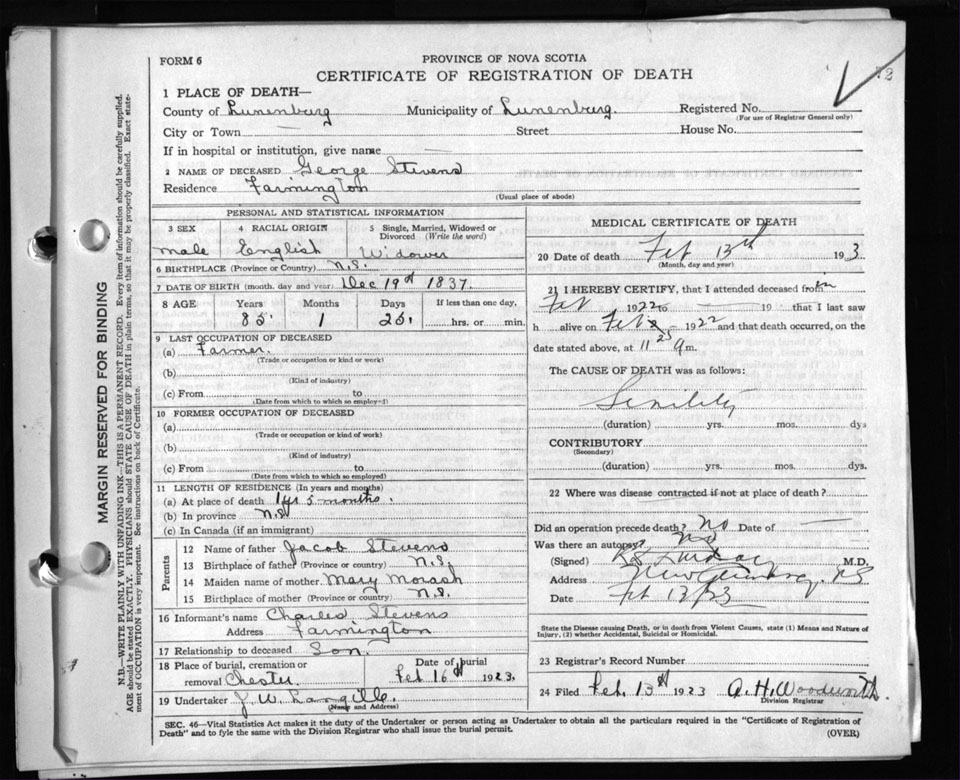 FORM 6
PROVINCE OF NOVA SCOTIA
CERTIFICATE OF REGISTRATION OF DEATH
1 PLACE OF DEATH—
County of Lunenburg Municipality of Lunenburg. Registered No.
(For use of Registrar General only)
City or Town — Street House No.
If in hospital or institution, give name —
2 NAME OF DECEASED George Stevens
Residence Farmington
(Usual place of abode)
PERSONAL AND STATISTICAL INFORMATION
3 SEX 4 RACIAL ORIGIN 5 Single, Married, Widowed or Divorced (Write the word)
male English Widower
6 BIRTHPLACE (Province or Country) N.S.
7 DATE OF BIRTH (month, day and year) Dec 19th 1837.
8 AGE Years Months Days If less than one day,
85 1 25. hrs. or min.
9 LAST OCCUPATION OF DECEASED
(a) Farmer.
(Trade or occupation or kind or work)
(b)
(Kind of industry)
(c) From to
(Date from which to which so employed)
10 FORMER OCCUPATION OF DECEASED
(a)
(Trade or occupation or kind of work)
(b)
(Kind of industry)
(c) From to
(Date from which to which so employed)
11 LENGTH OF RESIDENCE (In years and months)
(a) At place of death 1 yr 5 months.
(b) In province N.S
(c) In Canada (if an immigrant)
Parents
12 Name of father Jacob Stevens
13 Birthplace of father (Province or country) N.S.
14 Maiden name of mother Mary Morash
15 Birthplace of mother (Province or country) N.S.
16 Informant's name Charles Stevens
Address Farmington
17 Relationship to deceased Son.
18 Place of burial, cremation or removal Chester. Date of burial Feb 16th 1923.
19 Undertaker J. W. Langille.
(Name and Address)
MEDICAL CERTIFICATE OF DEATH
20 Date of death Feb 13th 1923
(Month, day and year)
21 I HEREBY CERTIFY, that I attended deceased from in
Feb 1922 to — 19 that I last saw
h alive on Feb — 1922 and that death occurred, on the
date stated above, at 11 m.
The CAUSE OF DEATH was as follows:
Senility
(duration) yrs. mos. dys
CONTRIBUTORY
(Secondary)
(duration) yrs. mos. dys.
22 Where was disease contracted if not at place of death?
Did an operation precede death? No Date of —
Was there an autopsy? No
(Signed) M.D.
Address New Germany. NS
Date Feb 13/23
State the Disease causing Death, or in death from Violent Causes, state (1) Means and Nature of
Injury, (2) whether Accidental, Suicidal or Homicidal.
23 Registrar's Record Number
24 Filed Feb. 13th 1923 A. H. Woodworth.
Division Registrar
SEC. 46—Vital Statistics Act makes it the duty of the Undertaker or person acting as Undertaker to obtain all the particulars required in the "Certificate of Registration of
Death" and to fyle the same with the Division Registrar who shall issue the burial permit. (OVER)
MARGIN RESERVED FOR BINDING
N.B.—WRITE PLAINLY WITH UNFADING INK—THIS IS A PERMANENT RECORD. Every item of information should be carefully supplied.
AGE should be stated EXACTLY. PHYSICIANS should STATE CAUSE OF DEATH in plain terms, so that it may be properly classified. Exact state-
ment of OCCUPATION is very important. See instructions on back of Certificate.